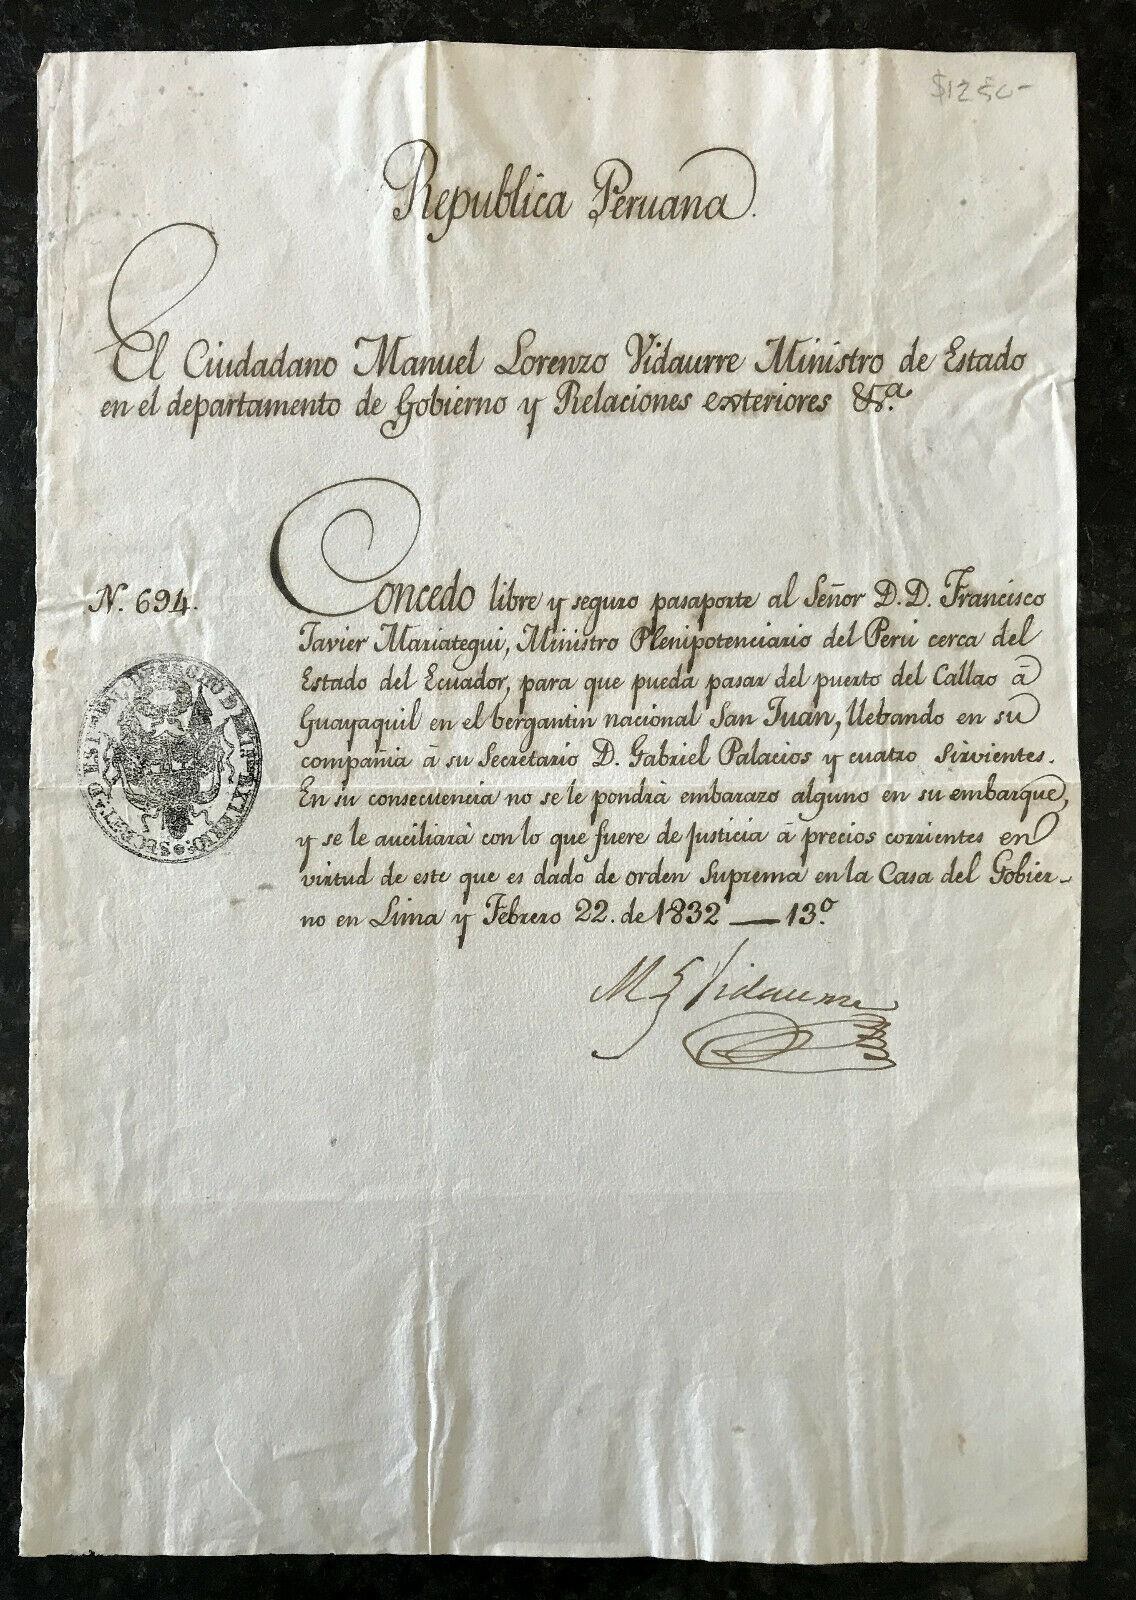 $1250-
Republica Peruana.
El Ciudadano Manuel Lorenzo Vidaurre Ministro de Estado
en el departamento de Gobierno y Relaciones exteriores &.ª
N. 694.
Concedo libre y seguro pasaporte al Señor D.D. Francisco
Javier Mariategui, Ministro Plenipotenciario del Perú cerca del
Estado del Ecuador, para que pueda pasar del puerto del Callao á
Guayaquil en el bergantin nacional San Juan, llebando en su
compañia á su Secretario D. Gabriel Palacios y cuatro sirvientes.
En su consecuencia no se le pondrá embarazo alguno en su embarque,
y se le auciliará con lo que fuere de justicia á precios corrientes en
virtud de este que es dado de orden Suprema en la Casa del Gobier-
no en Lima y Febrero 22. de 1832 — 13.º
M L Vidaurre